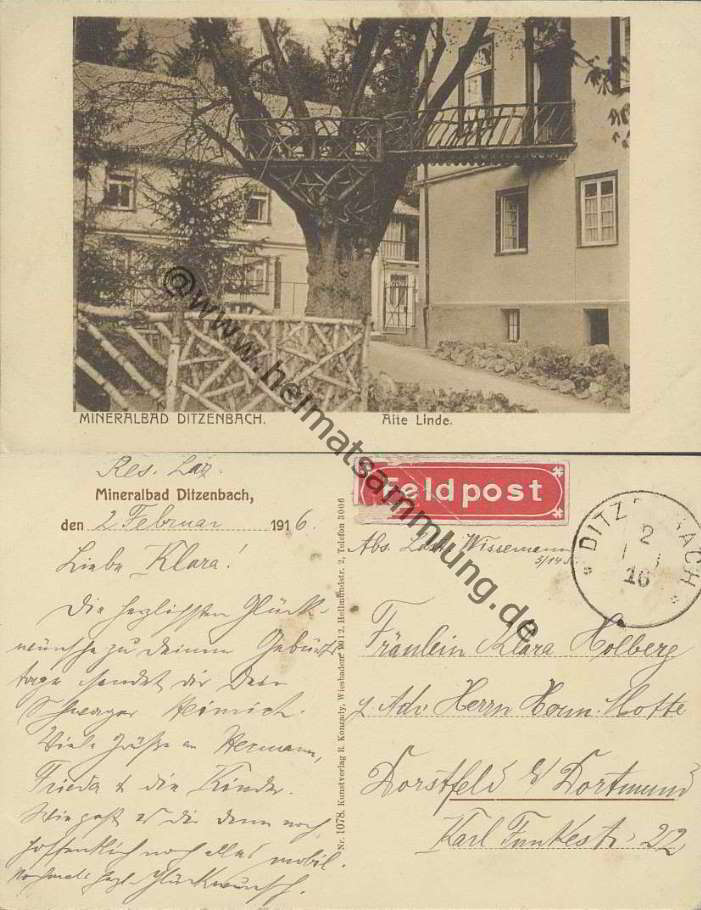 MINERALBAD DITZENBACH. Alte Linde.
@www.heimatsammlung.de
Res. Laz.
Mineralbad Ditzenbach,
den 2 Februar 1916.
Liebe Klara!
Die herzlichsten Glück-
wünsche zu deinem Geburts
tage sendet dir Dein
Schwager Heinrich.
Viele Grüße an Hermann,
Frieda & die Kinder.
Wie geht es dir denn noch,
hoffentlich noch alles mobil.
Nochmals herzl. Glückwunsch.
Nr. 1078. Kunstverlag R. Konrady, Wiesbaden 1912, Hellmundstr. 2, Telefon 3006
Feldpost
Abs. Ldst. Wissemann
DITZENBACH
2
16
Fräulein Klara Holberg
p. Adr Herrn Herm. Motte
Dorstfeld b/ Dortmund
Karl Funkestr. 22